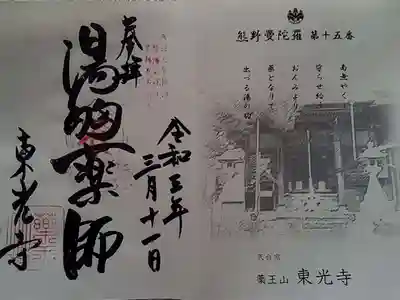 熊野曼陀羅 第十五番
南無やくし
守らせ給う
おんみより
薬となりて
出づる湯の胸
天台宗
薬王山 東光寺
令和三年
三月十一日
奉拝
湯胸薬師
東光寺